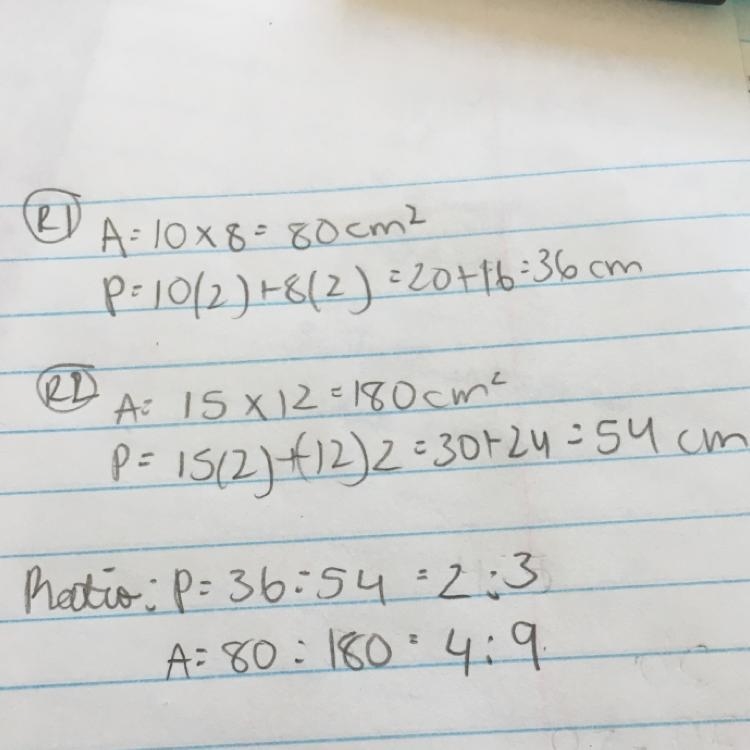 R1 A=10×8= 80cm²
P=10(2)+8(2)=20+16=36cm
R2 A= 15×12=180cm²
P= 15(2)+(12)2=30+24=54 cm
Ratio: P=36:54 =2:3
A=80:180=4:9